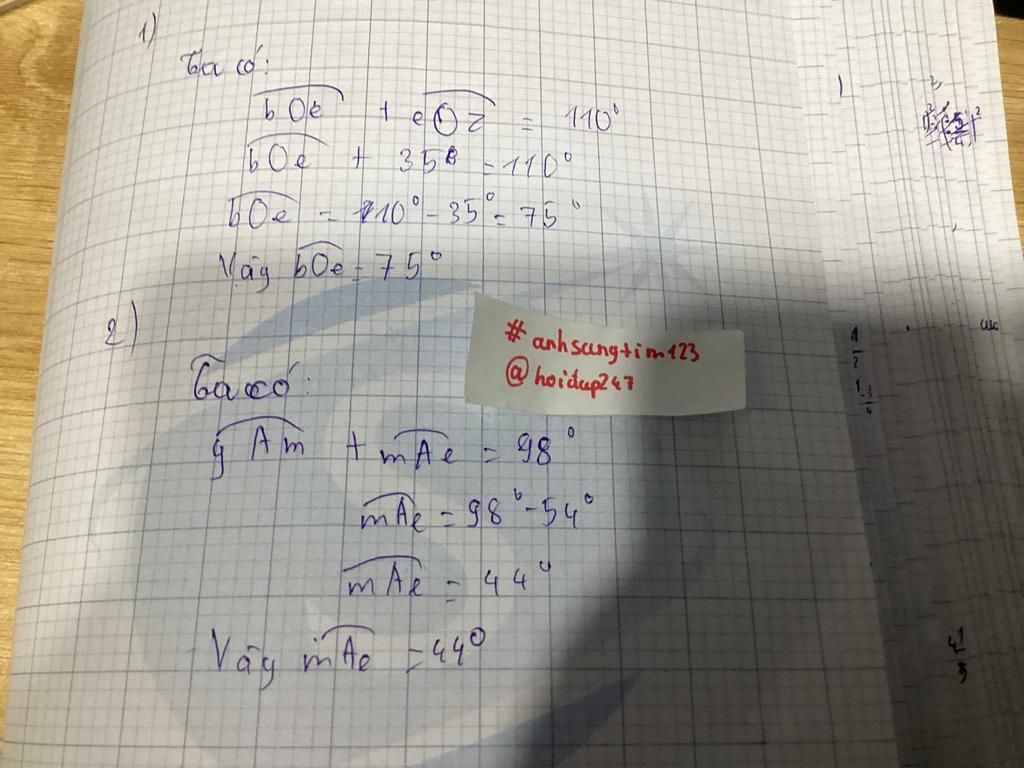 1)
Ta có:
bOe + eOz = 110°
bOe + 35° = 110°
bOe = 110° - 35° = 75°
Vây bOe = 75°
2)
Ta có:
gAm + mAe = 98°
mAe = 98° - 54°
mAe = 44°
Vây mAe = 44°
#anhsangtim123
@hoidap247